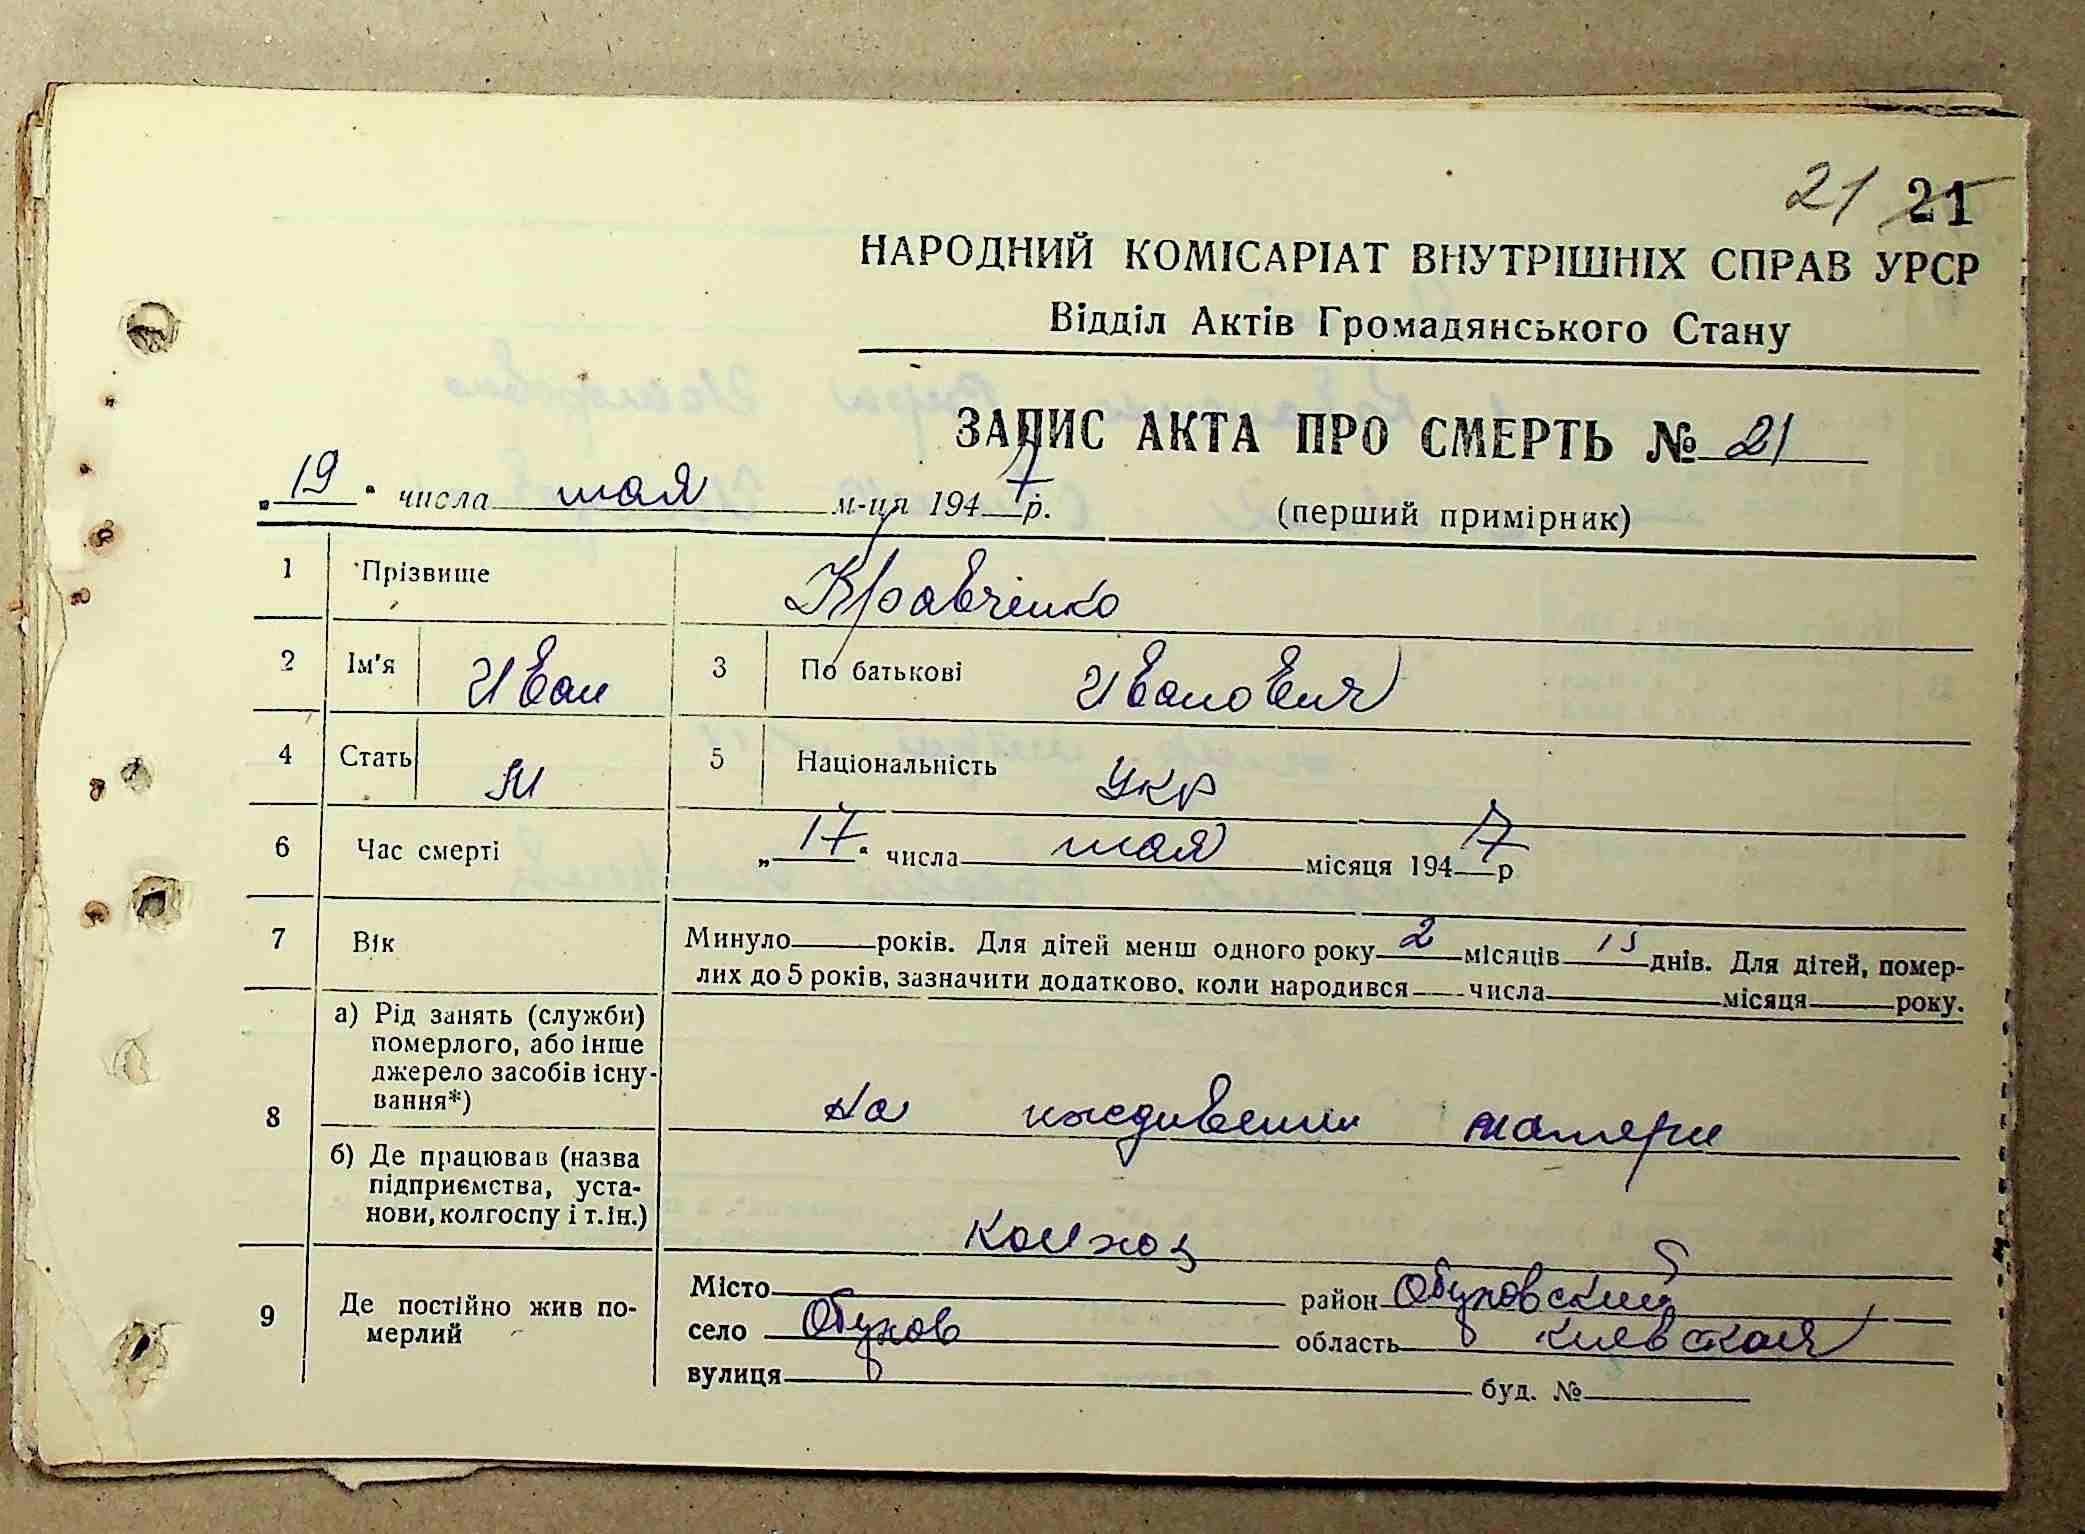 21 21
НАРОДНИЙ КОМІСАРІАТ ВНУТРІШНІХ СПРАВ УРСР
Відділ Актів Громадянського Стану
ЗАПИС АКТА ПРО СМЕРТЬ № 21
„19“ числа мая м-ця 1947 р.
(перший примірник)
1 Прізвище Кравченко
2 Ім'я Иван 3 По батькові Иванович
4 Стать М 5 Національність Укр
6 Час смерті „17“ числа мая місяця 1947 р
7 Вік Минуло років. Для дітей менш одного року 2 місяців 15 днів. Для дітей, помер-
лих до 5 років, зазначити додатково. коли народився числа місяця року.
8 а) Рід занять (служби)
померлого, або інше
джерело засобів існу-
вання*)
на иждивении матери
б) Де працював (назва
підприємства, уста-
нови, колгоспу і т.ін.)
колхоз
9 Де постійно жив по-
мерлий
Місто район Обуховский
село Обухов область Киевская
вулиця буд. №